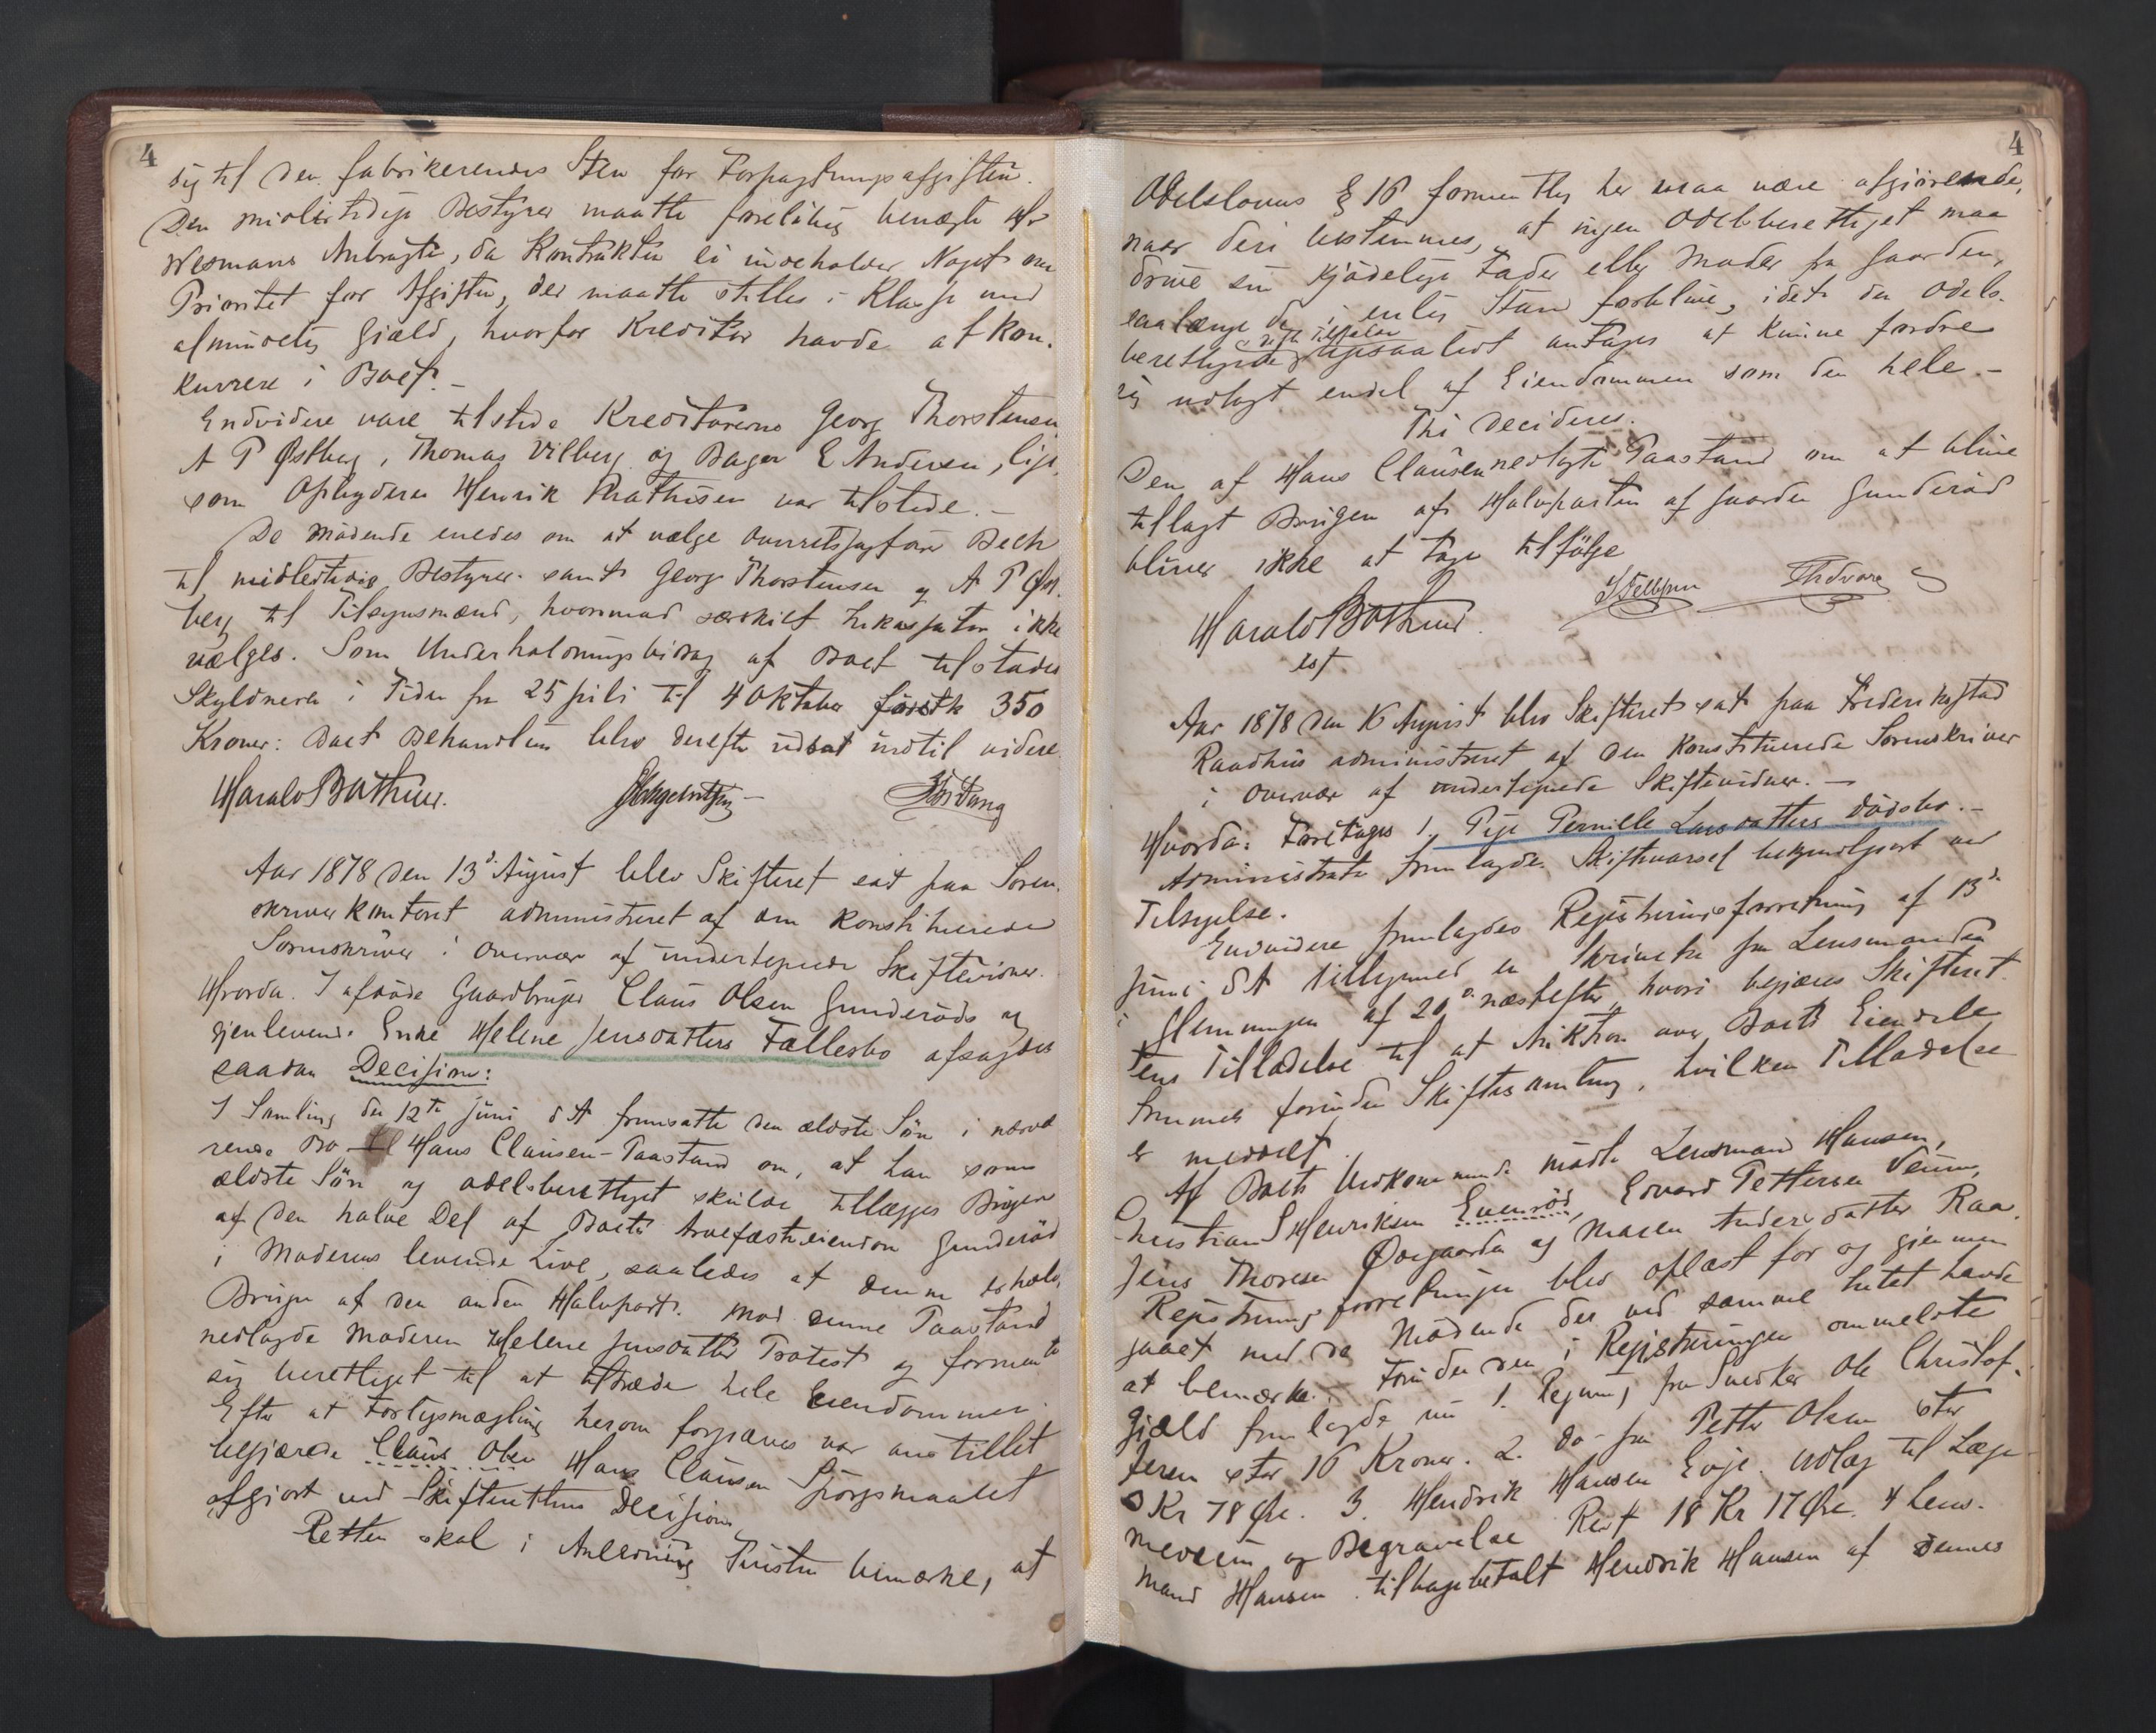 4
sig til den fabrikerendes Sten for Forpagtningsafgiften.
Den midlertidige Bestyrer maatte foreløbig benægte Hr
Wesmans Anbragte, da Kontrakten ei indeholder Noget om
Prioritet for Afgiften, der maatte stilles i Klasse med
almindelig Gjæld, hvorfor Kreditor havde at kon-
kurrere i Boet. –
Endvidere vare tilstede Kreditorerne Georg Thorstensen
A P Østberg, Thomas Vilberg og Bager E Andersen, lige
som Opbyderen Henrik Mathisen var tilstede. –
De Mødende enedes om at vælge Overretssagfører Bech
til midlertidig Bestyrer samt Georg Thorstensen og A P Øst-
berg til Tilsynsmænd, hvorimod særskilt Inkassator ikke
vælges. Som Underholdningsbidrag af Boet tilstodes
Skyldneren i Tiden fra 25 juli til 4 Oktober førstk 350
Kroner: Boets Behandling blev derefter udsat indtil videre
Harald Bothner.
Aar 1878 den 13de August blev Skifteret sat paa Soren-
skriverkontoret administreret af den konstituerede
Sorenskriver i Overvær af undertegnede Skiftevidner.
Hvorda. I afdøde Gaardbruger Claus Olsen Gunderøds og
gjenlevende Enke Helene Jensdatters Fællesbo afsagdes
saadan Decision:
I Samling den 12te juni d A fremsatte den ældste Søn i nærvæ
rende Bo Hans Clausen Paastand om, at han som
ældste Søn og odelsberettiget skulde tillægges Brugen
af den halve Del af Boets Arvefæsteeiendom Gunderød
i Moderens levende Live, saaledes at denne beholdt
Brugen af den anden Halvpart. Mod denne Paastand
nedlagde Moderen Helene Jensdatter Protest og formente
sig berettiget til at tiltræde hele Eiendommen.
Efter at Forligsmægling herom forgjæves var anstillet
begjærede Claus Olsen Hans Clausen Spørgsmaalet
afgjort ved Skifterettens Decision
Retten skal i Anledning Tvisten bemærke, at
4
Odelslovens § 16 formentlig her maa være afgjørende,
naar deri bestemmes, at ingen Odelsberettiget maa
drive sin kjødelige Fader eller Moder fra Gaarden,
saalænge de i enlig Stand forblive, idet den Odels-
i dette Tilfælde
berettigede ligesaalidt antages at kunne fordre
sig udlagt endel af Eiendommen som den hele. –
Thi decideres.
Den af Hans Clausen nedlagte Paastand om at blive
tillagt Brugen af Halvparten af Gaarden Gunderød
bliver ikke at tage tilfølge
Harald Bothner
cst.
Aar 1878 den 16 August blev Skifteret sat paa Frederikstad
Raadhus administreret af den konstituerede Sorenskriver
i Overvær af undertegnede Skiftevidner. –
Hvorda: Foretages 1. Pige Pernille Larsdatters Dødsbo. –
Administrator fremlagde Skiftevarsel bekjendtgjort ved
Tilsigelse.
Endvidere fremlagdes Registreringsforretning af 13de
Juni d A tilligemed en Skrivelse fra Lensmanden
i Glemmingen af 20de næstefter hvori begjæres Skifteret-
tens Tilladelse til at Auktion over Boets Eiendele
fremmes forinden Skiftesamling, hvilken Tilladelse
er meddelt.
Af Boets Vedkommende mødte Lensmand Hansen,
Christian S Henriksen Evenrød, Edvard Pettersen Veum,
Jens Thoresen Ødegaarden og Maren Andersdatter Raa.
Registreringsforretningen blev oplæst for og gjennem
gaaet med de Mødende der ved samme Intet havde
at bemærke. Foruden den i Registreringen ommeldte
Gjæld fremlagde nu 1. Regning fra Snedker Ole Christof-
fersen stor 16 Kroner. 2. do fra Petter Olsen stor
3 Kr 78 Øre. 3. Hendrik Hansen Evje. Udlæg til Læge
medecin og Begravelse Rest 18 Kr 17 Øre. 4 Lens-
mand Hansen tilbagebetalt Hendrik Hansen af dennes